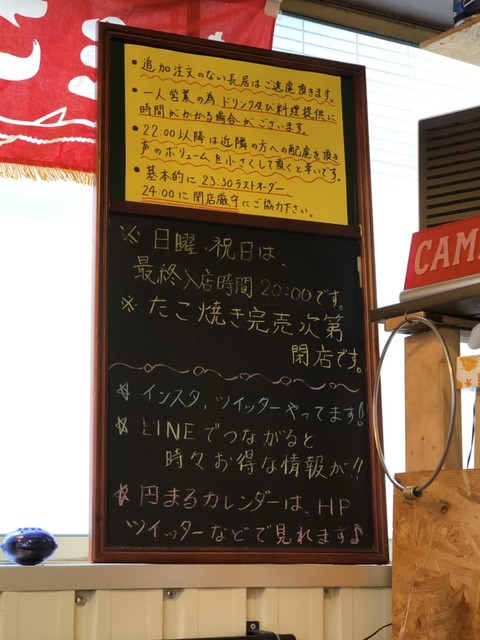 ・追加注文のない長居はご遠慮頂きます。
・一人営業の為、ドリンク及び料理提供に
時間がかかる場合がございます。
・22:00以降は近隣の方への配慮を頂き
声のボリュームを小さくして頂くと幸いです。
・基本的に23:30ラストオーダー
24:00に閉店厳守にご協力下さい。
※日曜・祝日は、
最終入店時間20:00です。
※たこ焼き完売次第
閉店です。
☆インスタ、ツイッターやってます!!
☆LINEでつながると
時々お得な情報が!!
☆円まるカレンダーは、HP
ツイッターなどで見れます♪
CAM